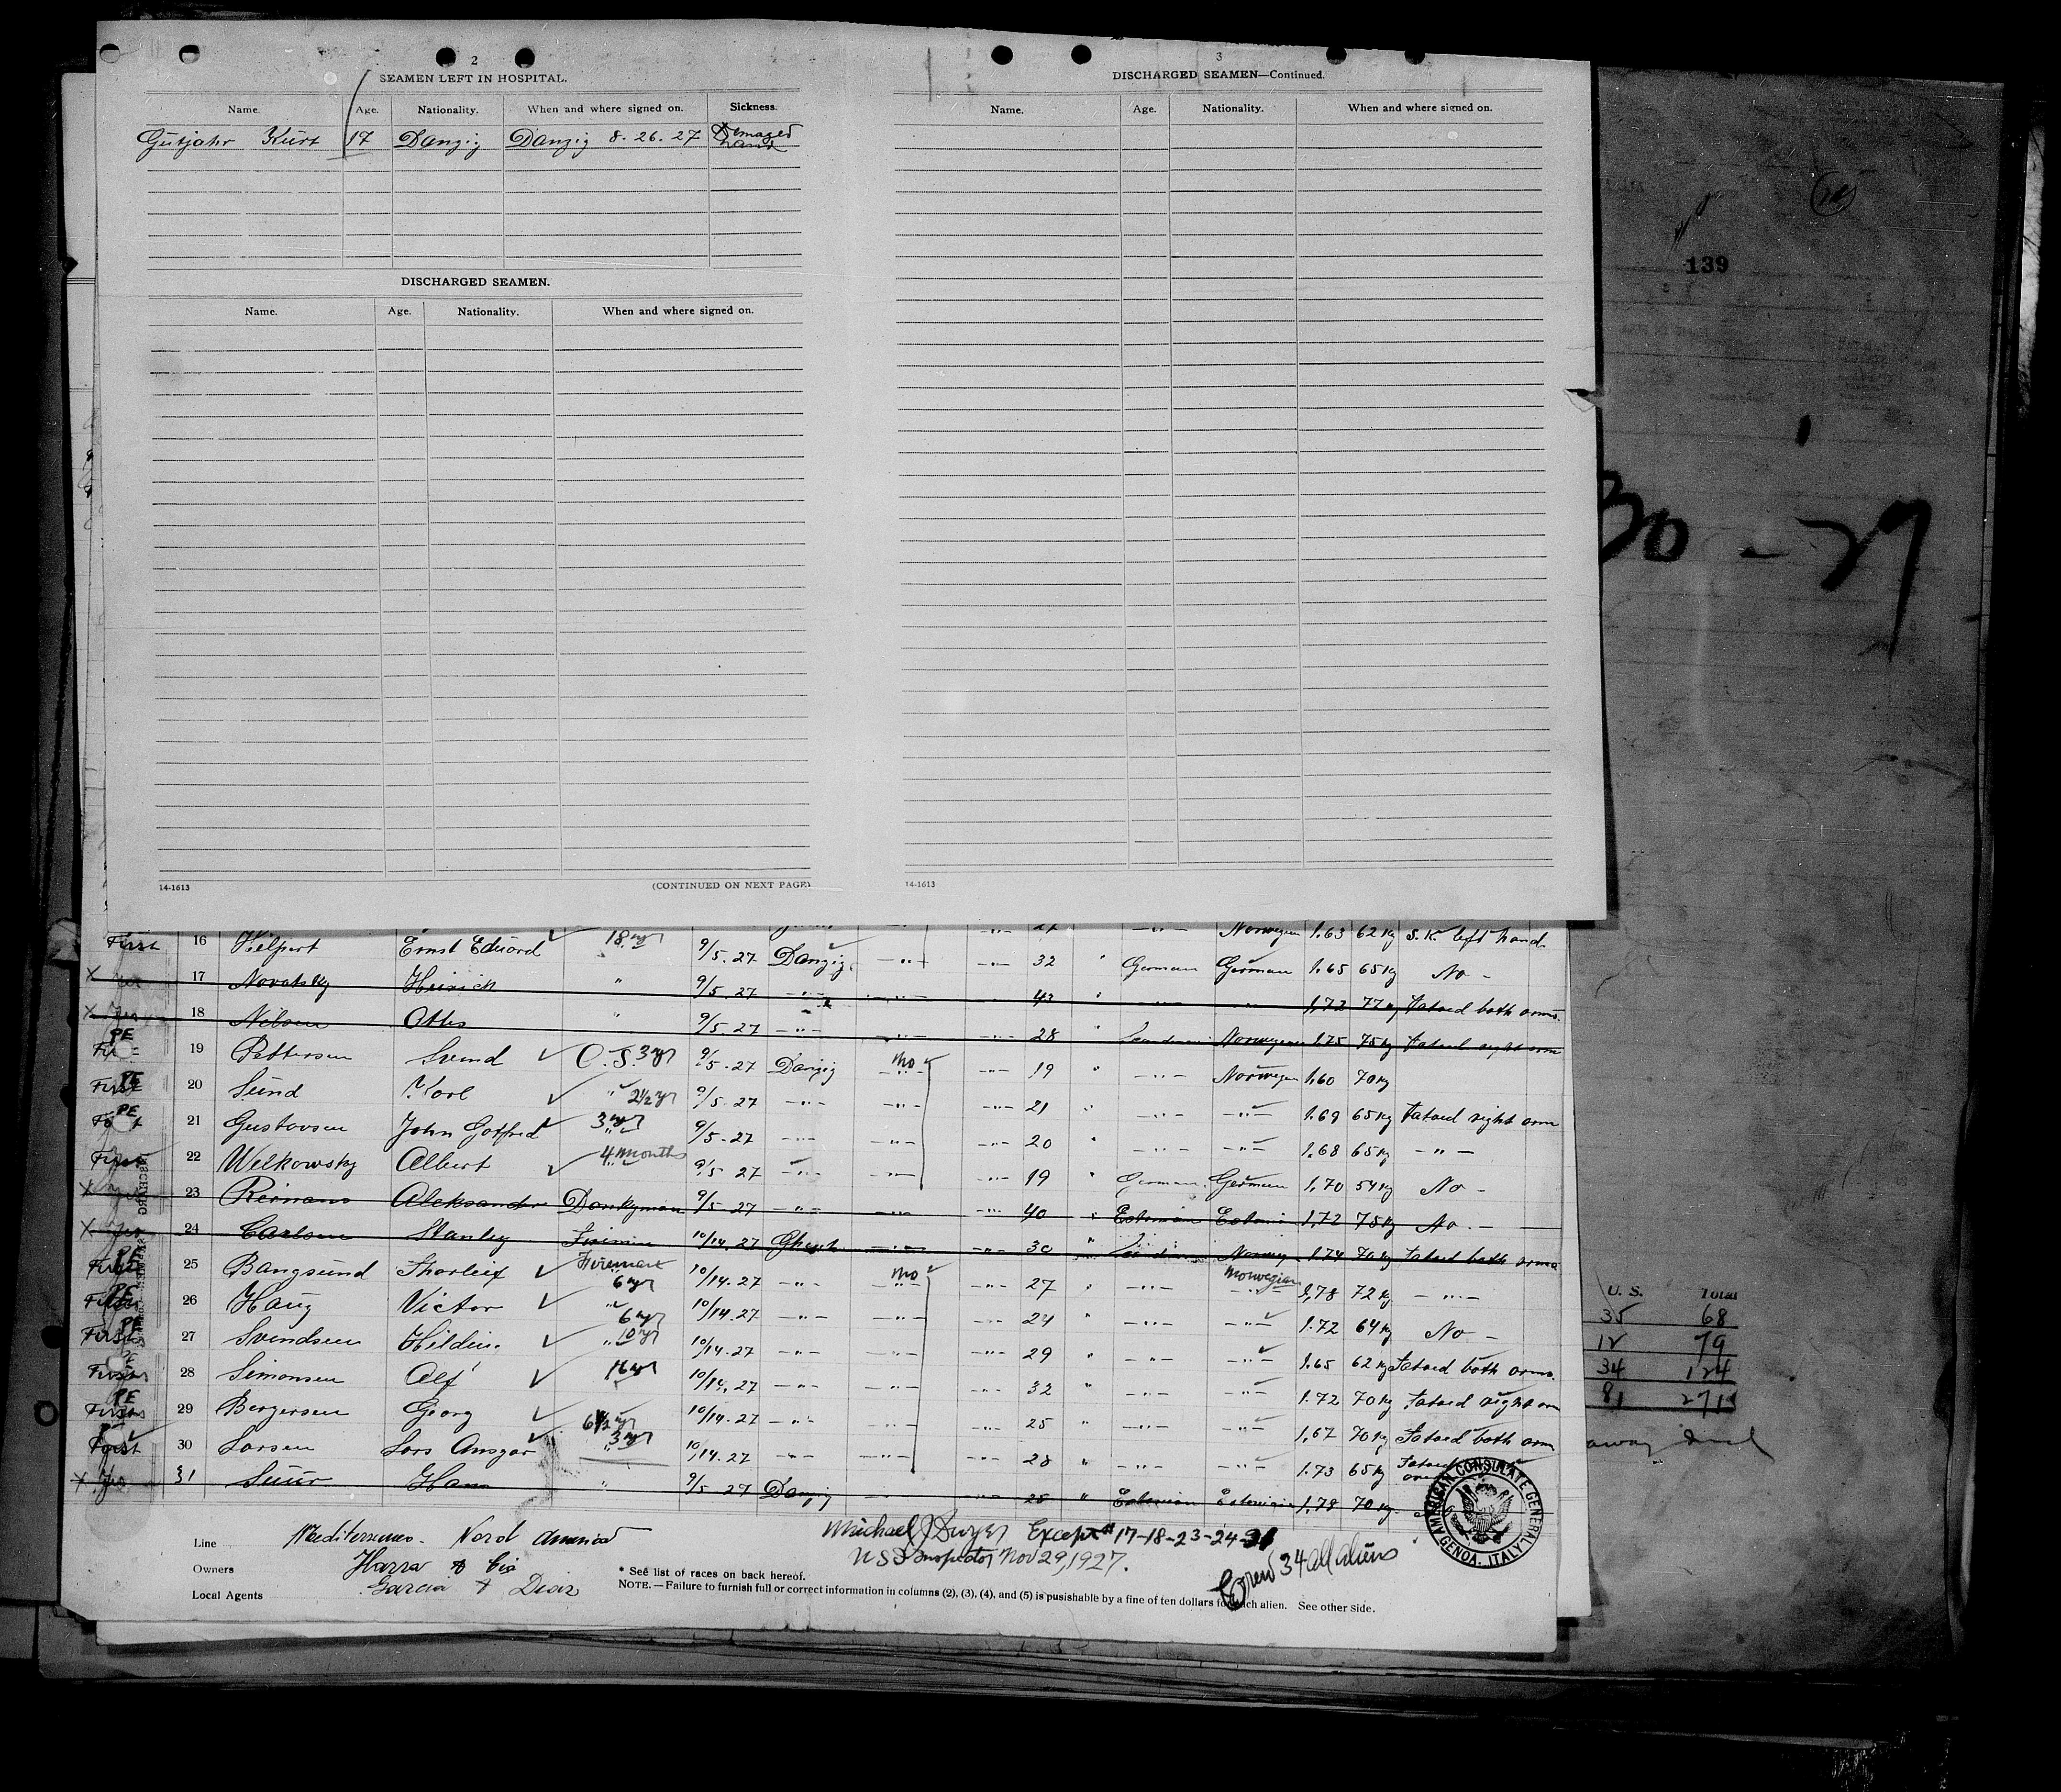 2
SEAMEN LEFT IN HOSPITAL.
Name. Age. Nationality. When and where signed on. Sickness.
Gutjahr Kurt 17 Danzig Danzig 8. 26. 27 Demaged hand
DISCHARGED SEAMEN.
Name. Age. Nationality. When and where signed on.
14-1613 (CONTINUED ON NEXT PAGE)
3
DISCHARGED SEAMEN—Continued.
Name. Age. Nationality. When and where signed on.
14-1613
139
30 - 27
Norwegian 1.63 62 kg S.K. left hand
First 16 Ernst Eduard 18 yr 9/5.27 Danzig -"- -"- 32 " German German 1.65 65 kg No -
X yes 17 Novatsky Heinrich " 9/5.27 -"- -"- -"- 43 " 1.72 77 kg Tatoed both arms.
X yes 18 Nilsen Otto " 9/5.27 -"- -"- -"- 28 " Norwegian 1.75 75 kg Tatoed right arm
PE First 19 Pettersen Svend O.S. 3 yr 9/5.27 Danzig no -"- 19 " -"- Norwegian 1.60 70 kg
PE First 20 Sund Karl " 2 1/2 yr 9/5.27 -"- -"- -"- 21 " -"- -"- 1.69 65 kg Tatoed right arm
PE First 21 Gustavsen John Gotfred 3 yr 9/5.27 -"- -"- -"- 20 " -"- -"- 1.68 65 kg -"-
First 22 Welkowsky Albert 4 months 9/5.27 -"- -"- -"- 19 " German German 1.70 54 kg No -
X yes 23 Reimans Aleksander Donkyman 9/5.27 -"- -"- -"- 40 " Estonian Estonia 1.72 75 kg No. -
X yes 24 Carlsen Stanley Firiman 10/14.27 Ghent -"- -"- 30 " Norweg 1.74 70 kg Tatoed both arms
PE First 25 Bangsund Thorleif Firemen 6 yr 10/14.27 -"- no -"- 27 " -"- Norwegian 1.78 72 kg -"-
PE First 26 Haug Victor " 6 yr 10/14.27 -"- -"- -"- 24 " -"- -"- 1.72 64 kg No -
PE First 27 Svendsen Hilding " 10 yr 10/14.27 -"- -"- -"- 29 " -"- -"- 1.65 62 kg Tatoed both arms.
PE First 28 Simonsen Alf 16 yr 10/14.27 -"- -"- -"- 32 " -"- -"- 1.72 70 kg Tatoed right arm
PE First 29 Bergersen Georg 6 1/2 yr 10/14.27 -"- -"- -"- 25 " -"- -"- 1.67 70 kg Tatoed both arm
First 30 Larsen Lars Ansgar " 3 yr 10/14.27 -"- -"- -"- 28 " -"- -"- 1.73 65 kg Tatoed
X yes 31 Suur Hans " 9/5.27 Danzig -"- 25 " Estonian Estonian 1.78 70 kg.
Line Mediterraneo - Nord America
Owners & Cia
Local Agents Garcia & Diaz
Michael J Dwyer Except # 17-18-23-24-31
U S Inspector Nov 29, 1927.
Crew 34 all aliens
* See list of races on back hereof.
NOTE.—Failure to furnish full or correct information in columns (2), (3), (4), and (5) is pusishable by a fine of ten dollars for each alien. See other side.
AMERICAN CONSULATE GENERAL
GENOA, ITALY
U. S. Total
35 68
12 79
34 124
81 271